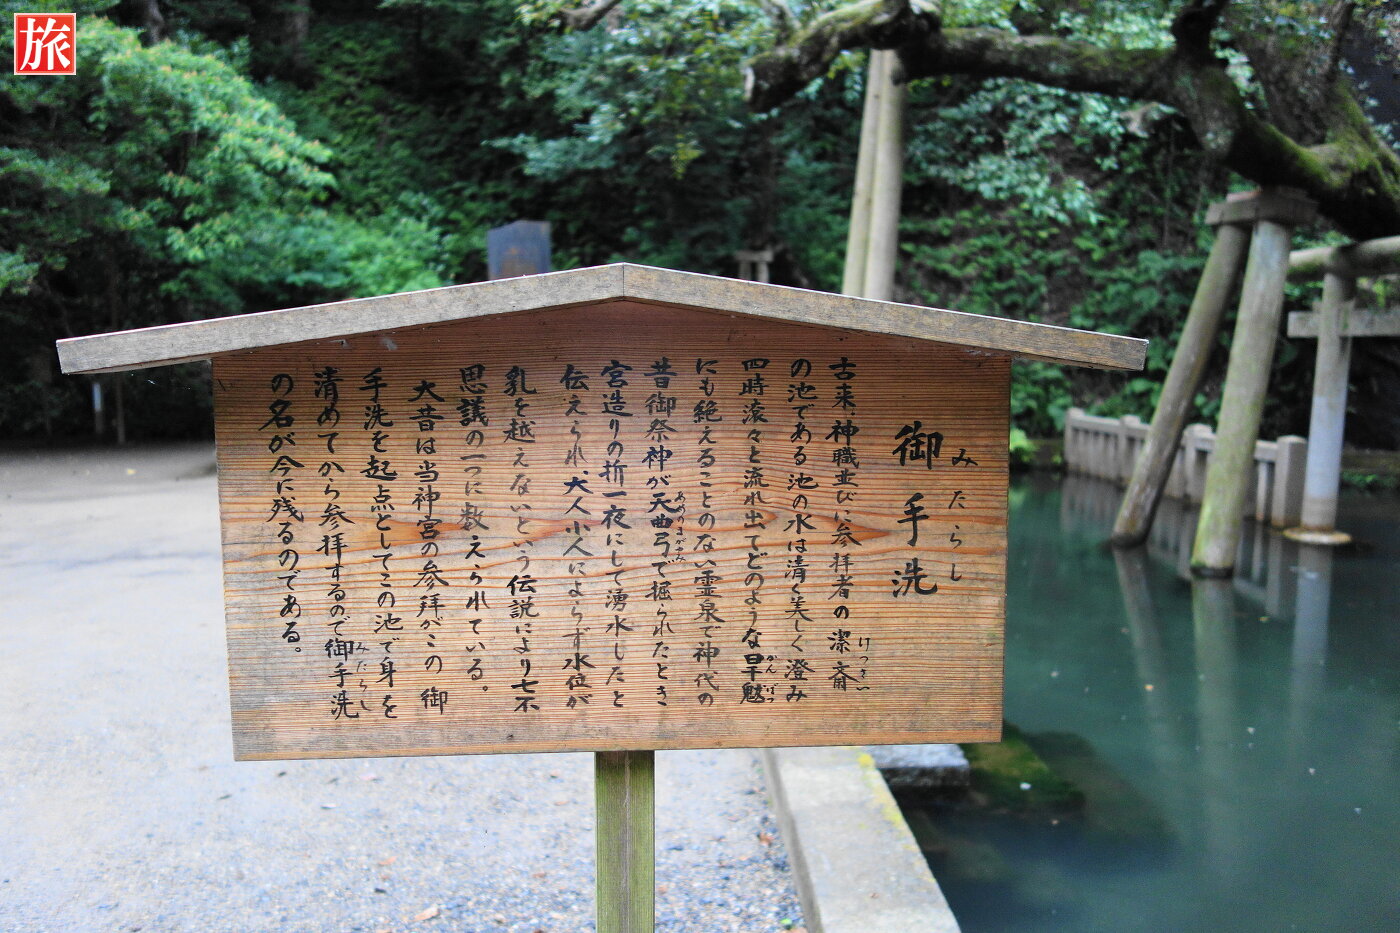 旅
御手洗
みたらし
古来、神職並びに参拝者の潔斎
けっさい
の池である池の水は清く美しく澄み
四時滾々と流れ出てどのような旱魃
かんばつ
にも絶えることのない霊泉で神代の
昔御祭神が天曲弓で掘られたとき
あめのまがゆみ
宮造りの折一夜にして湧水したと
伝えられ、大人小人によらず水位が
乳を越えないという伝説により七不
思議の一つに数えられている。
大昔は当神宮の参拝がこの御
手洗を起点としてこの池で身を
清めてから参拝するので御手洗
みたらし
の名が今に残るのである。